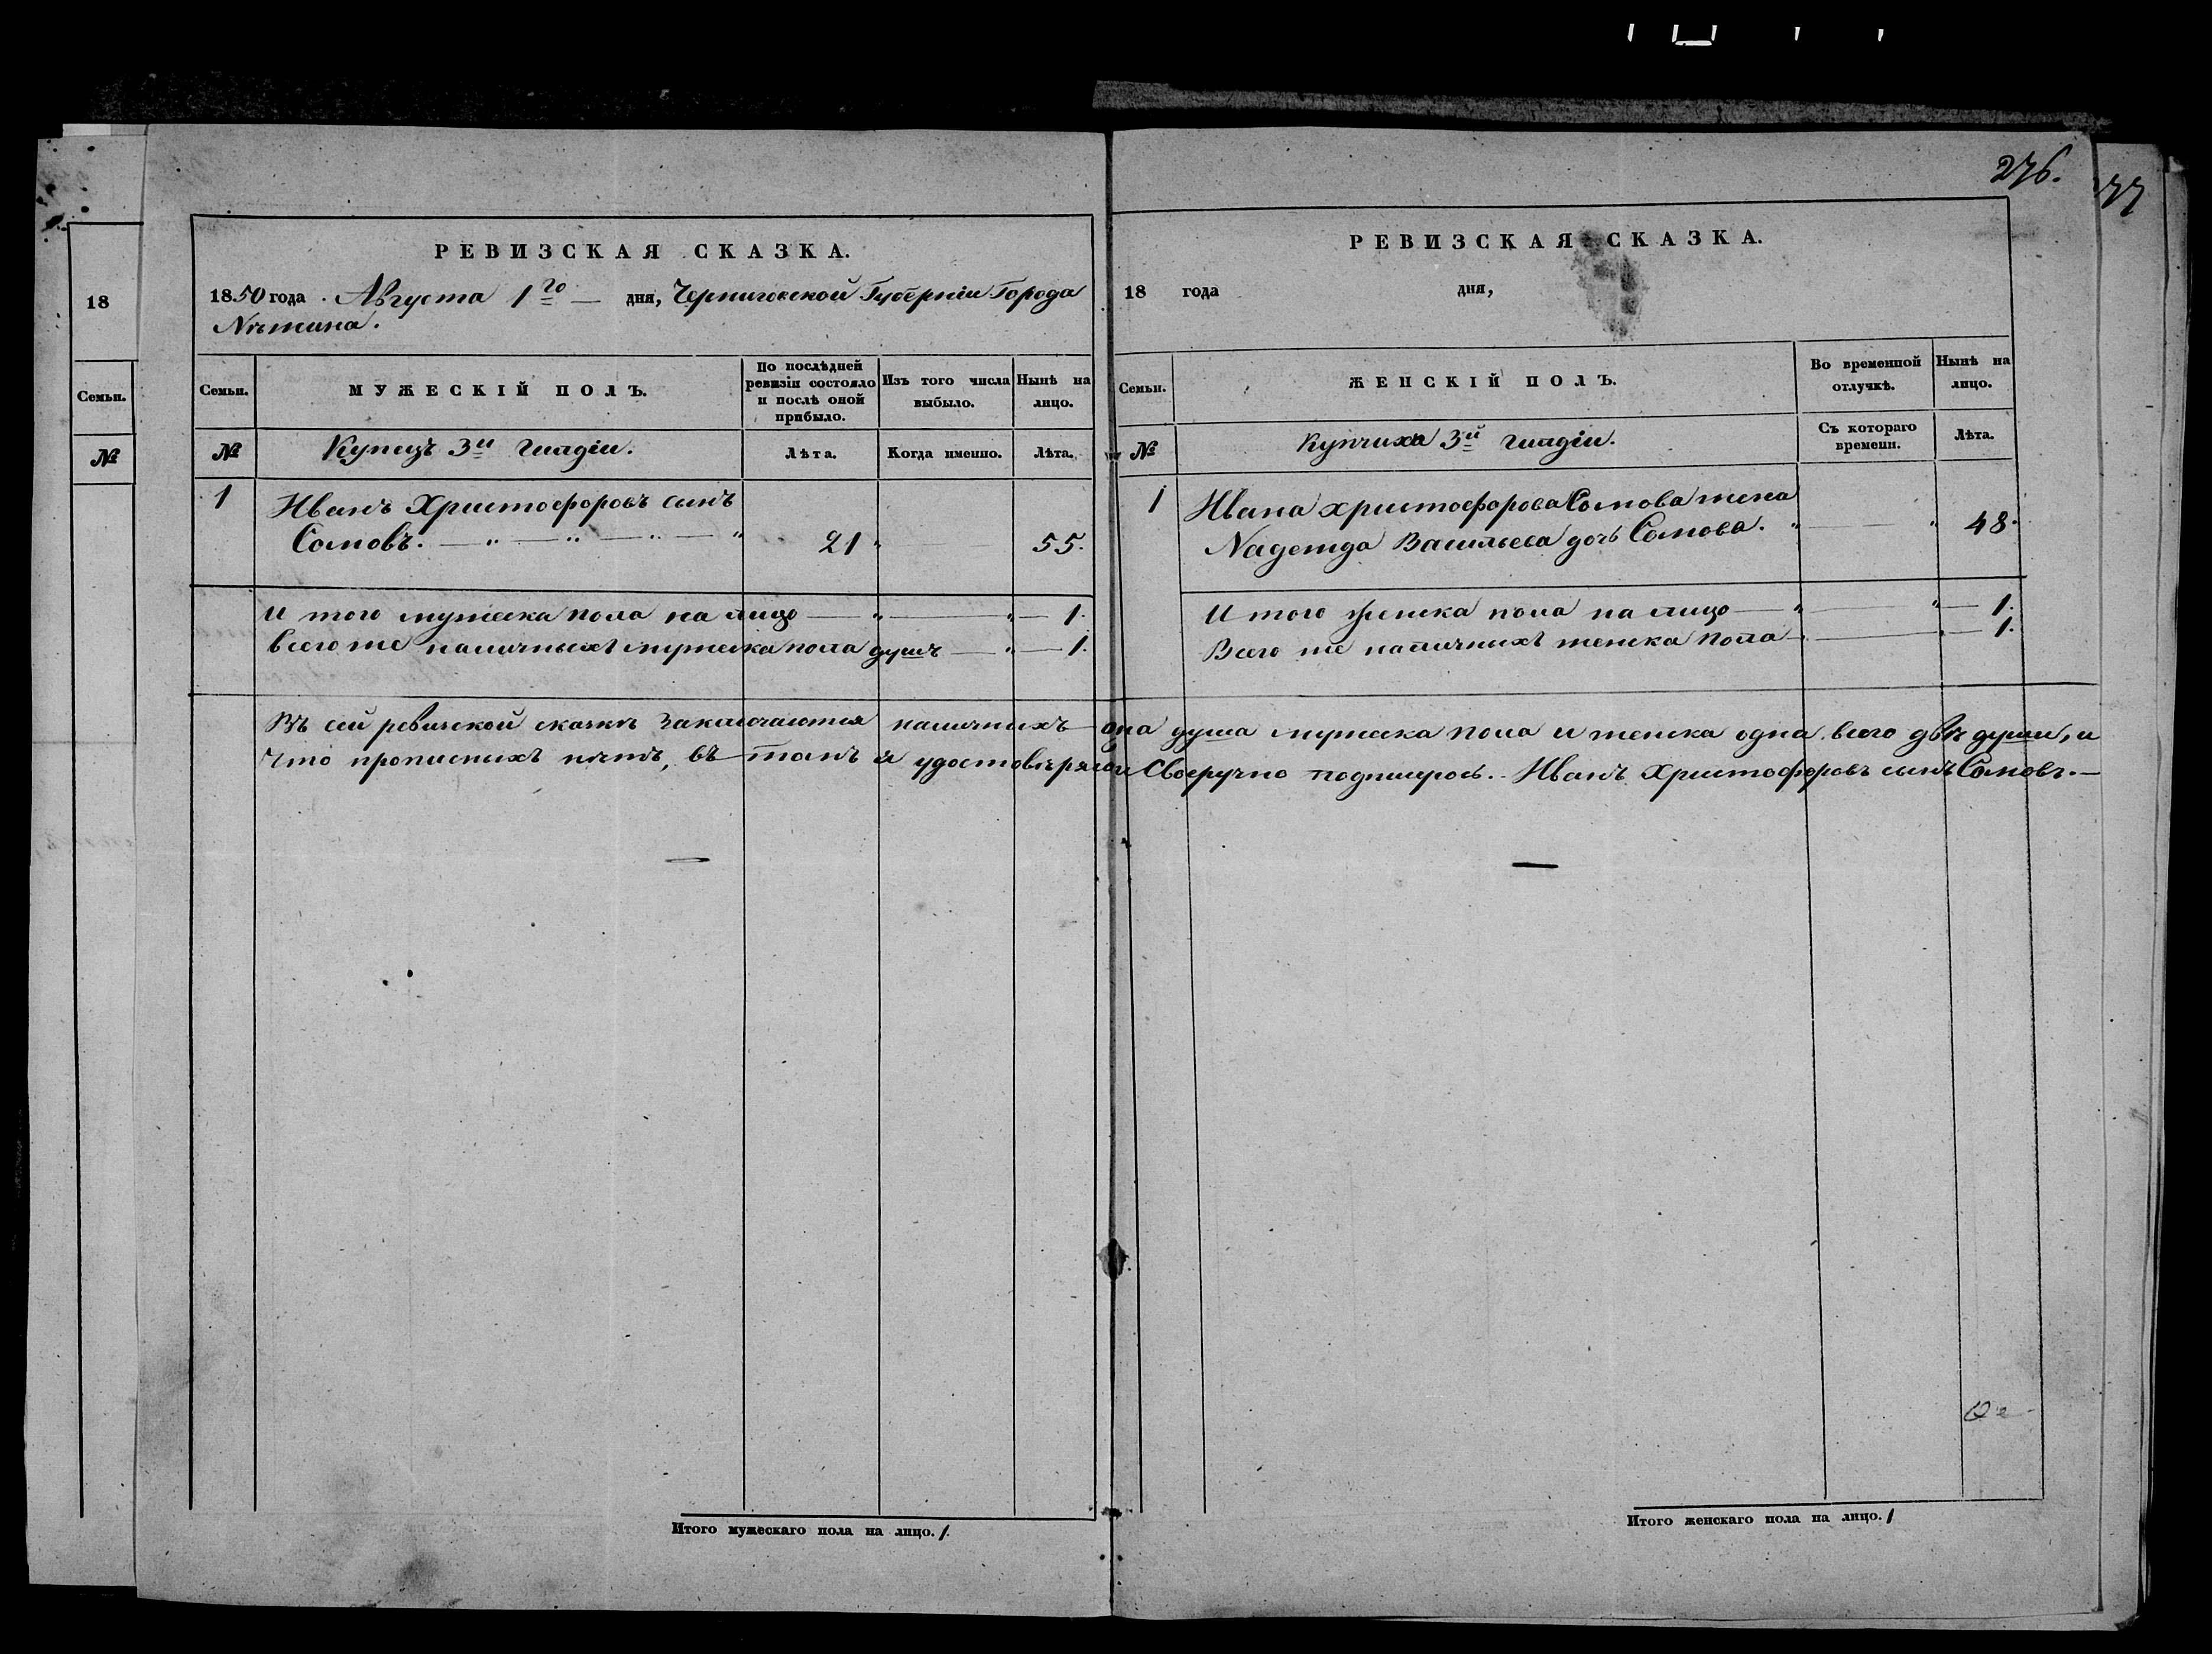 276.
77
18
Семьи.
№
РЕВИЗСКАЯ СКАЗКА.
1850 года Августа 1го — дня, Черниговской Губерніи Города
Нѣжина.
Семьи.
МУЖЕСКІЙ ПОЛЪ.
По послѣдней ревизіи состояло и послѣ оной прибыло.
Изъ того числа выбыло.
Нынѣ на лицо.
№
Купецъ 3й гилдіи.
Лѣта.
Когда именно.
Лѣта.
1
Иванъ Христофоровъ сынъ
Сомовъ. 21 55.
И того мужеска пола на лицо — 1.
Всего же наличныхъ мужеска пола душъ — 1.
РЕВИЗСКАЯ СКАЗКА.
18 года дня,
Семьи.
ЖЕНСКІЙ ПОЛЪ.
Во временной отлучкѣ.
Нынѣ на лицо.
№
Купчиха 3й гилдіи.
Съ котораго времени.
Лѣта.
1
Ивана Христофорова Сомова жена
Надежда Васильева дочь Сомова. 48.
И того женска пола на лицо — 1.
Всего же наличныхъ женска пола — 1.
Въ сей ревизской сказкѣ заключаются наличныхъ одна душа мужеска пола и женска одна. всего двѣ души, и
что прописныхъ нѣтъ, въ томъ я удостовѣряю и своеручно подпишусь. Иванъ Христофоровъ сынъ Сомовъ. —
Итого мужескаго пола на лицо. 1.
Итого женскаго пола на лицо. 1